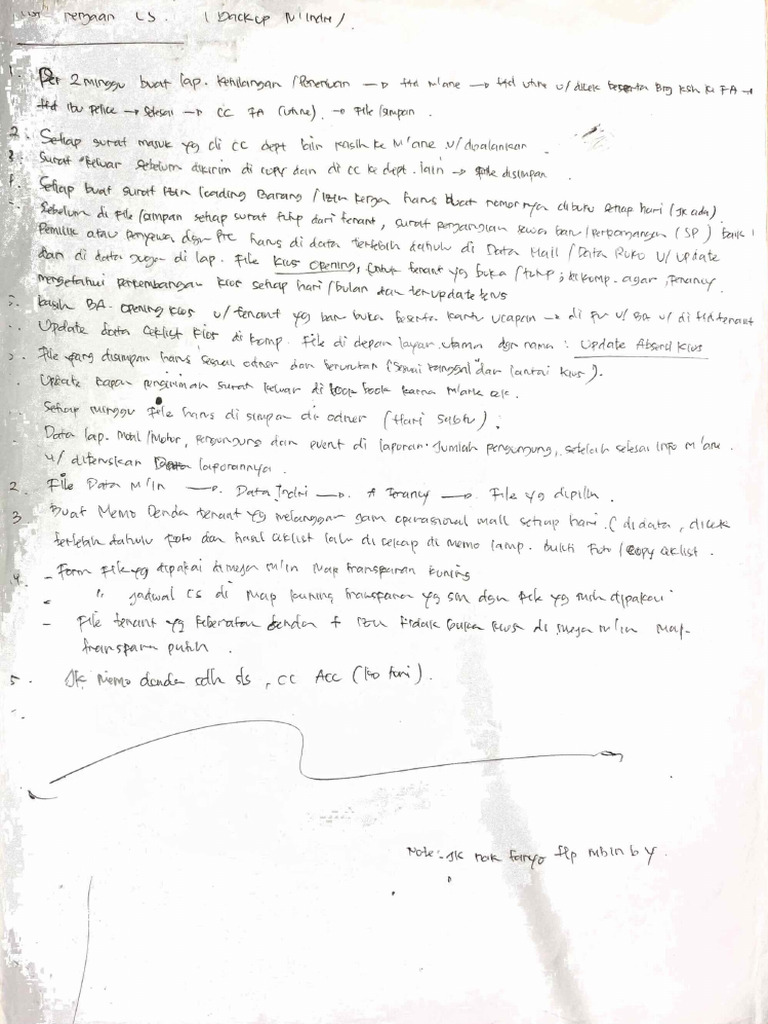 List Kerjaan CS. (Backup M'Indri).
1. Per 2 minggu buat lap. Kehilangan / Penemuan → ttd M'ane → ttd uthe u/ dicek beserta Brg ksh ke FA →
ttd Ibu Felice → Selesai → CC FA (Uthne). → File / simpan.
2. Setiap surat masuk yg di CC dept lain kasih ke M'ane u/ dijalankan.
3. Surat keluar sebelum dikirim di copy dan di CC ke dept. lain → file disimpan.
Setiap buat surat Izin loading Barang / Izin kerja harus buat nomornya dibuku setiap hari (jk ada).
Sebelum di File / simpan setiap surat tutup dari tenant, surat perjanjian sewa baru / perpanjangan (SP) baik
Pemilik atau Penyewa dgn PTC harus di data terlebih dahulu di Data Mall / Data Ruko u/ update
dan di data juga di lap. File Kios Opening, untuk tenant yg buka / tutup; di komp. agar Tenancy
mengetahui perkembangan kios setiap hari / bulan dan terupdate terus
kasih BA. Opening Kios u/ tenant yg baru buka beserta kartu ucapan → di u/ BA u/ di ttd tenant
Update data ceklist Kios di komp. File di depan layar utama dgn nama : Update Absensi Kios
File yang disimpan harus sesuai odner dan berurutan (sesuai tanggal dan lantai kios).
Update Bagan pengiriman surat keluar di book karna M'ane cek.
Setiap minggu file harus di simpan di odner (Hari Sabtu).
Data lap. Mobil / Motor, pengunjung dan event di laporan Jumlah pengunjung, setelah selesai Info M'ane.
u/ diteruskan laporannya.
2. File Data M'in → Data Indri → A Tenancy → File yg dipilih.
3. Buat Memo Denda tenant yg melanggar jam operasional mall setiap hari. (didata, dicek
terlebih dahulu foto dan hasil ceklist lalu di sekap di memo lamp. bukti Foto / Copy ceklist.
4. - Form File yg dipakai dimeja m'in Map transparan kuning
- " jadwal CS di Map kuning transparan yg sm dgn File yg msih dipakai
- File tenant yg keberatan denda + Izin tidak buka kios di meja m'in Map
transparan putih.
5. Jk Memo denda sdh sls, CC Acc (Ko Toni).
Note:- Jk nak tanyo tlp mbin by.